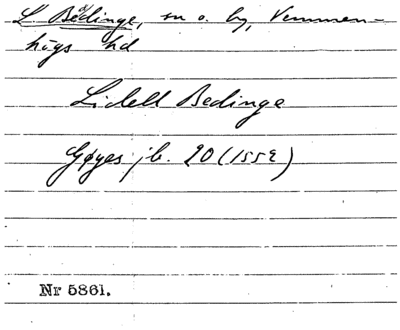 L Beddinge, sn o. by, Vemmen-
högs hd
Lidell Bedinge
Gøyes jb. 20 (1552)
Nr 5861.